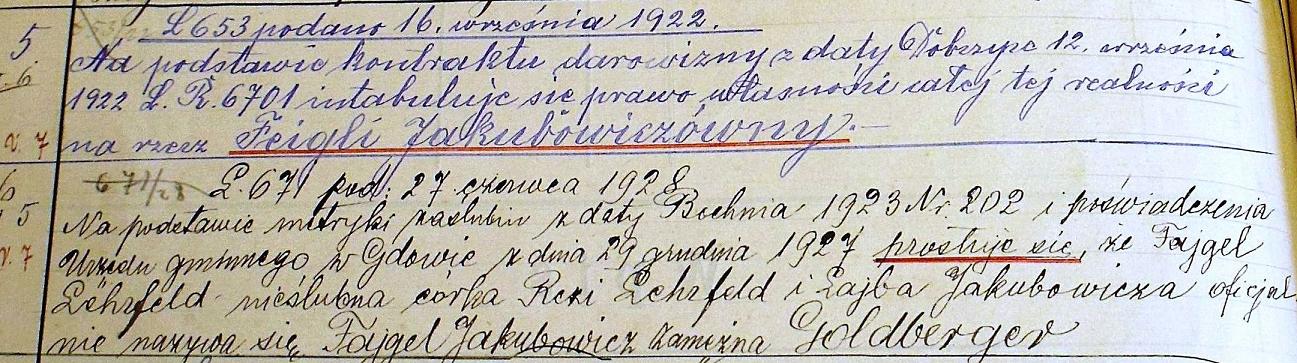 5 L 653 podano 16. września 1922.
Na podstawie kontraktu darowizny z daty Dobczyce 12. września
1922 L. R. 6701 intabuluje się prawo własności całej tej realności
v. 7 na rzecz Feigli Jakubowiczówny.—
6 671/28 L. 671 pod: 27 czerwca 1928
5 Na podstawie metryki zaślubin z daty Bochnia 1923 Nr. 202 i poświadczenia
v. 7 Urzędu gminnego w Gdowie z dnia 29 grudnia 1927 prostuje się, że Fajgel
Lehrfeld nieślubna córka Rezi Lehrfeld i Lajba Jakubowicza oficjal
nie nazywa się „Fajgel Jakubowicz zamężna Goldberger